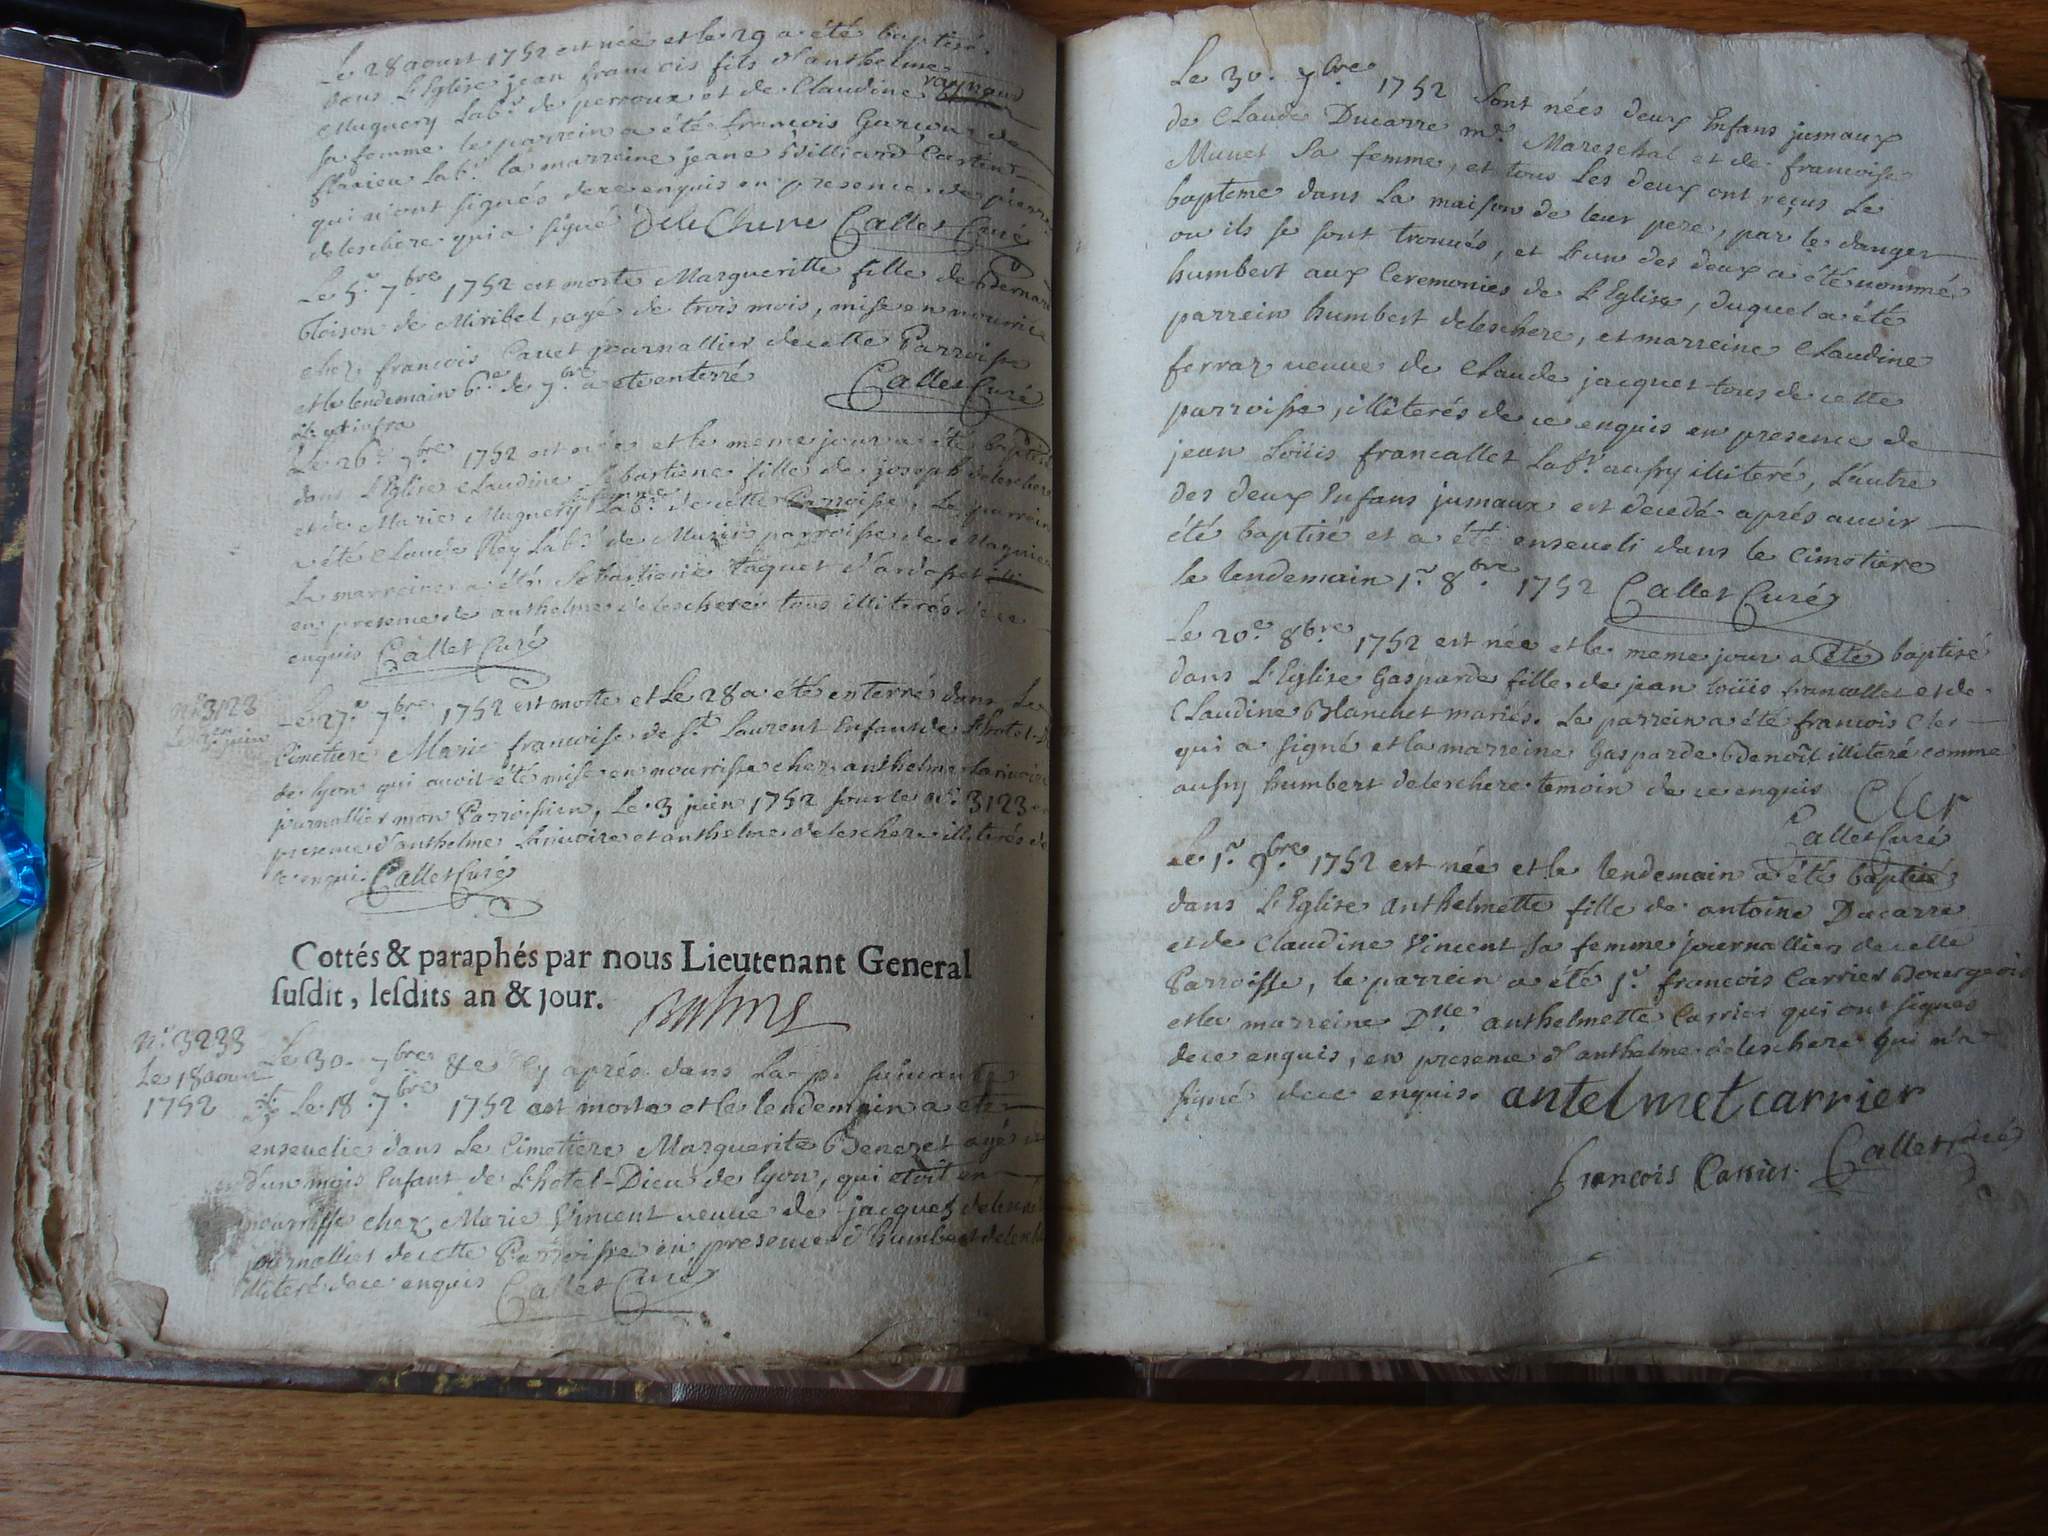 Le 28 aoust 1752 est née et le 29 a été baptisé
dans L'Eglise jean francois fils d'anthelme
Muguery Lab.r de perroux et de Claudine
sa femme le parrein a été francois
Lab.r la marreine jeane Villiard
qui n'ont signés de ce enquis en presence de pierre
deleschere qui a signé DeleChere Callet Curé
Le 5.e 7bre 1752 est morte Margueritte fille de Bernard
Cloison de Miribel, agé de trois mois, mise en nourrice
chez francois Cavet journallier de cette Parroisse
et le lendemain 6.e de 7bre a été enterré Callet Curé
Le 26.e 7bre 1752 est née et le meme jour a été baptisé
dans L'Eglise Claudine Sebastiene fille de joseph deleschere
et de Marie Muguery femme Lab.r de cette Parroisse, Le parrein
a été Claude Rey Lab.r de parroisse de
La marreine a été Sebastiene taquet d'ardosset
en presence de anthelme deleschere tous illiterés de ce
enquis Callet Curé
n.o 3123
Le 3 juin
Le 27.e 7bre 1752 est morte et Le 28 a été enterré dans Le
Cimetiere Marie francoise de S.t Laurent Enfant de L'hotel-D
de lyon qui avoit été mise en nourrisse chez anthelme Larivoire
journallier mon Parroissien, Le 3 juin 1752 sous le n.o 3123 en
presence d'anthelme Larivoire et anthelme deleschere illiterés de
ce enquis Callet Curé
Cottés & paraphés par nous Lieutenant General
susdit, lesdits an & jour.
n.o 3233
Le 18 aoust
1752
Le 30. 7bre &c Cy aprés dans La p. suivante
Le 18. 7bre 1752 est morte et le lendemain a été
ensevelie dans Le Cimetiere Marguerite Beneret agé
d'un mois Enfant de L'hotel-Dieu de lyon, qui etoit en
nourrisse chez Marie Vincent veuve de jacques
journallier de cette Parroisse en presence d'humbert deleschere
illiteré de ce enquis Callet Curé
Le 30. 7bre 1752 sont nées deux Enfans jumaux
de Claude Ducarre m.e Mareschal et de francoise
Munet sa femme, et tous Les deux ont reçus Le
bapteme dans La maison de leur pere, par le danger
ou ils se sont trouués, et L'un des deux a été nommé
humbert aux Ceremonies de L'Eglise, duquel a été
parrein humbert deleschere, et marreine Claudine
ferraz veuve de Claude jacquet tous de cette
parroisse, illiterés de ce enquis en presence de
jean Loüis francallet Lab.r aussy illiteré, L'autre
des deux Enfans jumaux est decedé aprés avoir
été baptisé et a été enseveli dans le Cimetiere
le lendemain 1.r 8bre 1752 Callet Curé
Le 20.e 8bre 1752 est née et le meme jour a été baptisé
dans L'Eglise Gasparde fille de jean loüis francallet et de
Claudine Blanchet mariés. Le parrein a été francois Cler
qui a signé et la marreine Gasparde Benoît illiteré comme
aussy humbert deleschere temoin de ce enquis Cler
Callet Curé
Le 1.r 9bre 1752 est née et le lendemain a été baptisé
dans L'Eglise anthelmette fille de antoine Ducarre
et de Claudine Vincent sa femme journalliers de cette
Parroisse, le parrein a été s.r francois Carrier Bourgeois
et la marreine D.lle anthelmette Carrier qui ont signés
de ce enquis, en presence d'anthelme deleschere qui n'a
signé de ce enquis. antelmet carrier
francois Carrier Callet Curé